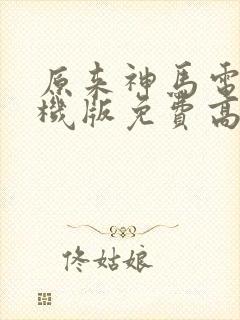 原来神馬電
機版免費高
佟姑娘